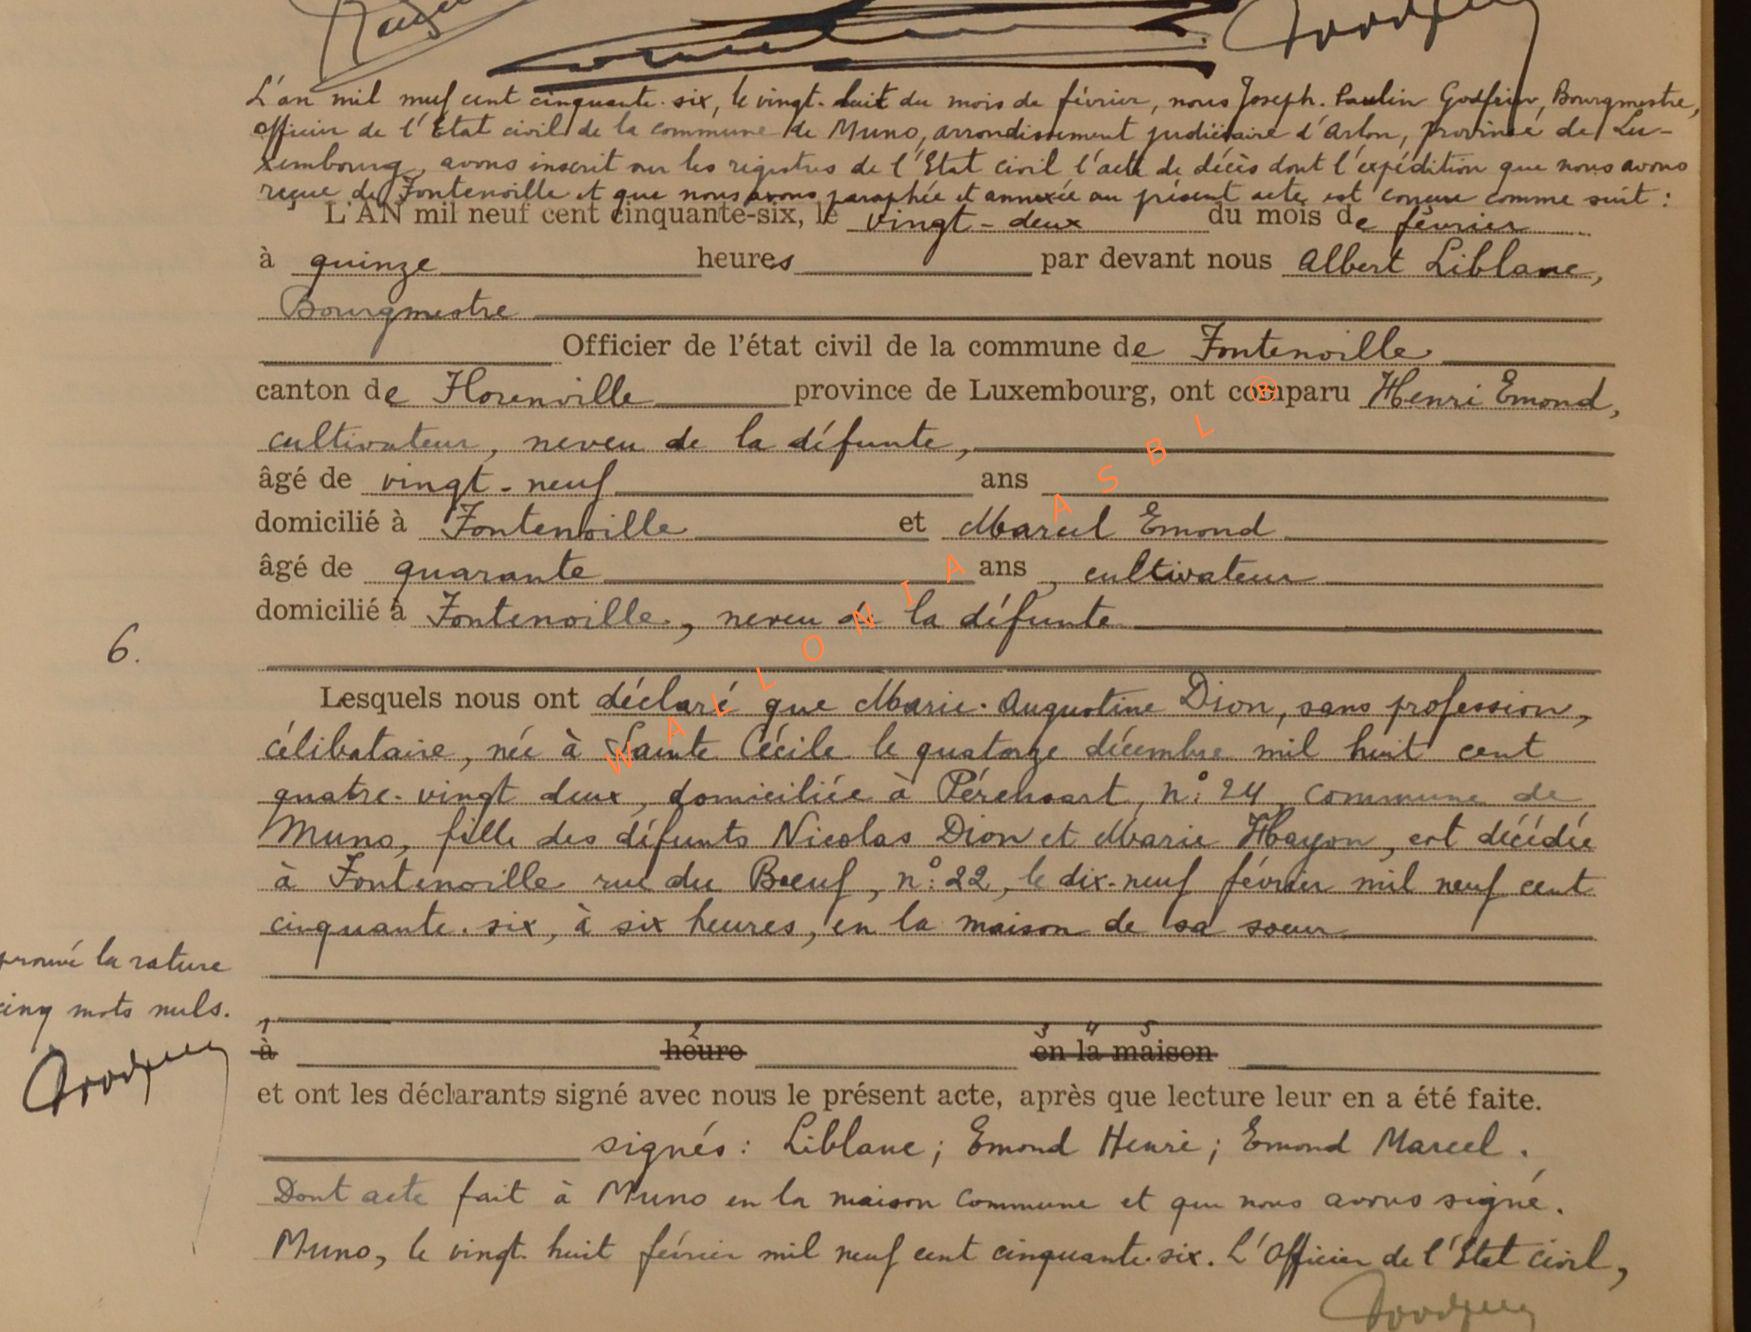 L'an mil neuf cent cinquante-six, le vingt-huit du mois de février, nous Joseph-Paulin Godfrin, Bourgmestre,
Officier de l'Etat civil de la commune de Muno, arrondissement judiciaire d'Arlon, province de Lu-
xembourg, avons inscrit sur les registres de l'Etat civil l'acte de décès dont l'expédition que nous avons
reçue de Fontenoille et que nous avons paraphée et annexée au présent acte, est conçue comme suit :
L'AN mil neuf cent cinquante-six, le vingt-deux du mois de février
à quinze heures par devant nous Albert Liblanc,
Bourgmestre
Officier de l'état civil de la commune de Fontenoille
canton de Florenville province de Luxembourg, ont comparu Henri Emond,
cultivateur, neveu de la défunte,
âgé de vingt-neuf ans
domicilié à Fontenoille et Marcel Emond
âgé de quarante ans, cultivateur
domicilié à Fontenoille, neveu de la défunte
6.
Lesquels nous ont déclaré que Marie-Augustine Dion, sans profession,
célibataire, née à Sainte Cécile le quatorze décembre mil huit cent
quatre-vingt deux, domiciliée à Pérensart, n° 24, commune de
Muno, fille des défunts Nicolas Dion et Marie Hayon, est décédée
à Fontenoille rue du Bœuf, n° 22, le dix-neuf février mil neuf cent
cinquante-six, à six heures, en la maison de sa soeur
prouvé la rature
cinq mots nuls.
1 2 3 4 5
à heure en la maison
et ont les déclarants signé avec nous le présent acte, après que lecture leur en a été faite.
signés : Liblanc ; Emond Henri ; Emond Marcel.
Dont acte fait à Muno en la maison commune et que nous avons signé.
Muno, le vingt-huit février mil neuf cent cinquante-six. L'Officier de l'Etat civil,
WALLONIA ASBL ®